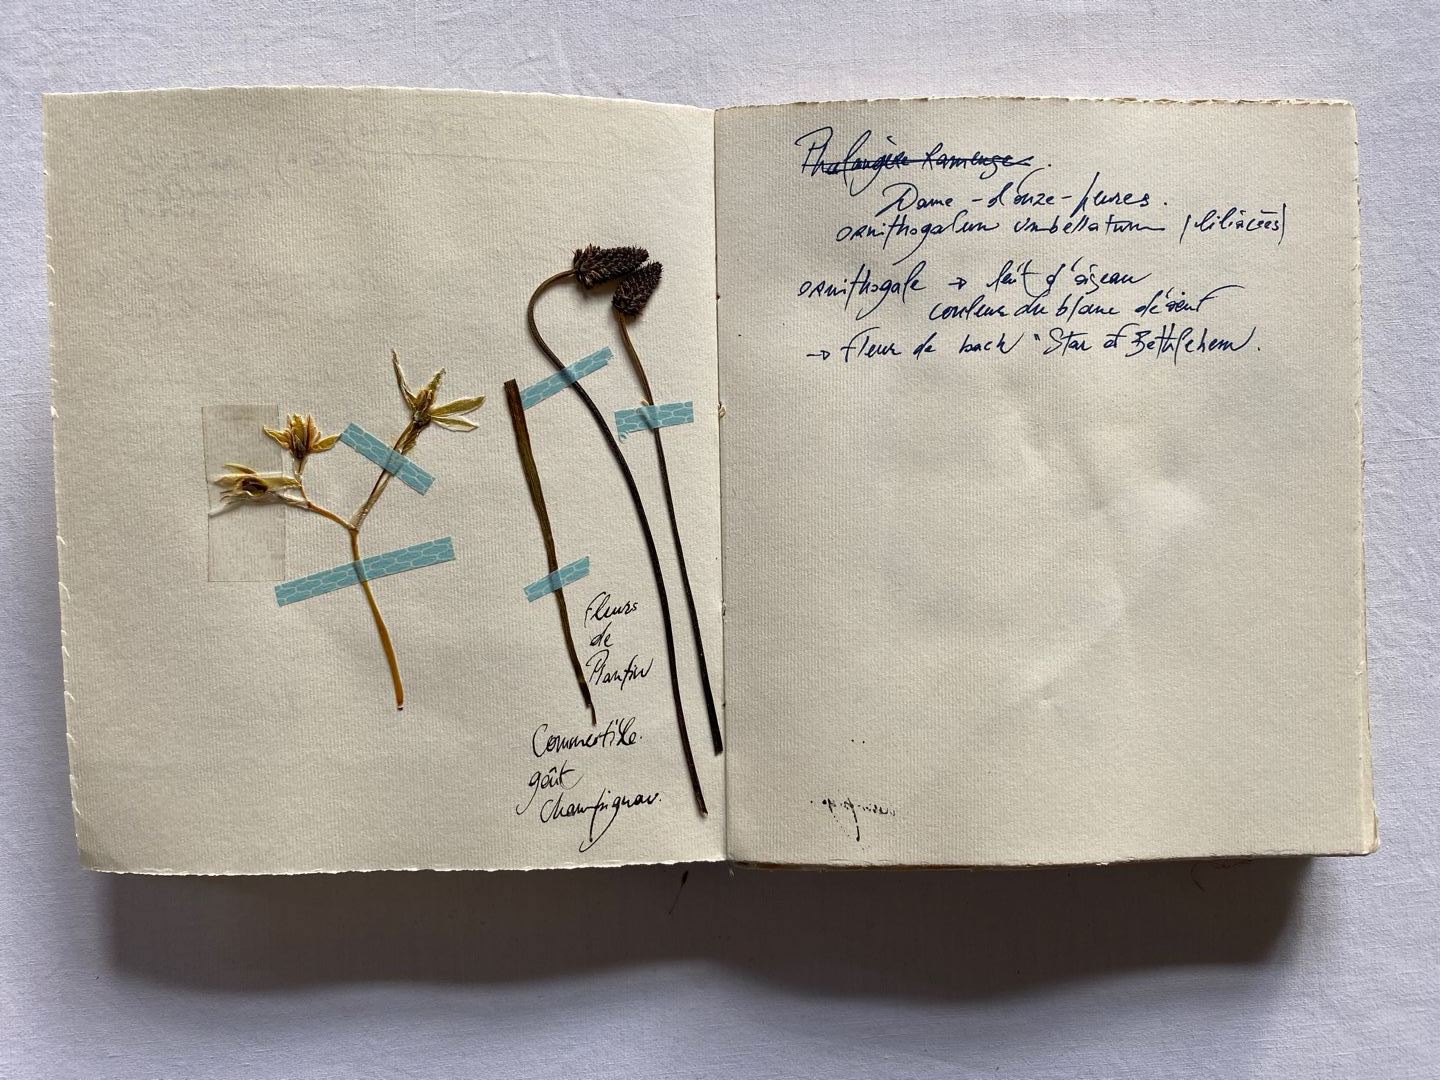 Fleurs
de
Plantin
Commestible.
goût
champignon.
Phalangère Rameuse.
Dame-d'onze-heures.
ornithogalum umbellatum (liliacées)
ornithogale → lait d'oiseau
couleur du blanc d'œuf
→ Fleur de bach "Star of Bethlehem.